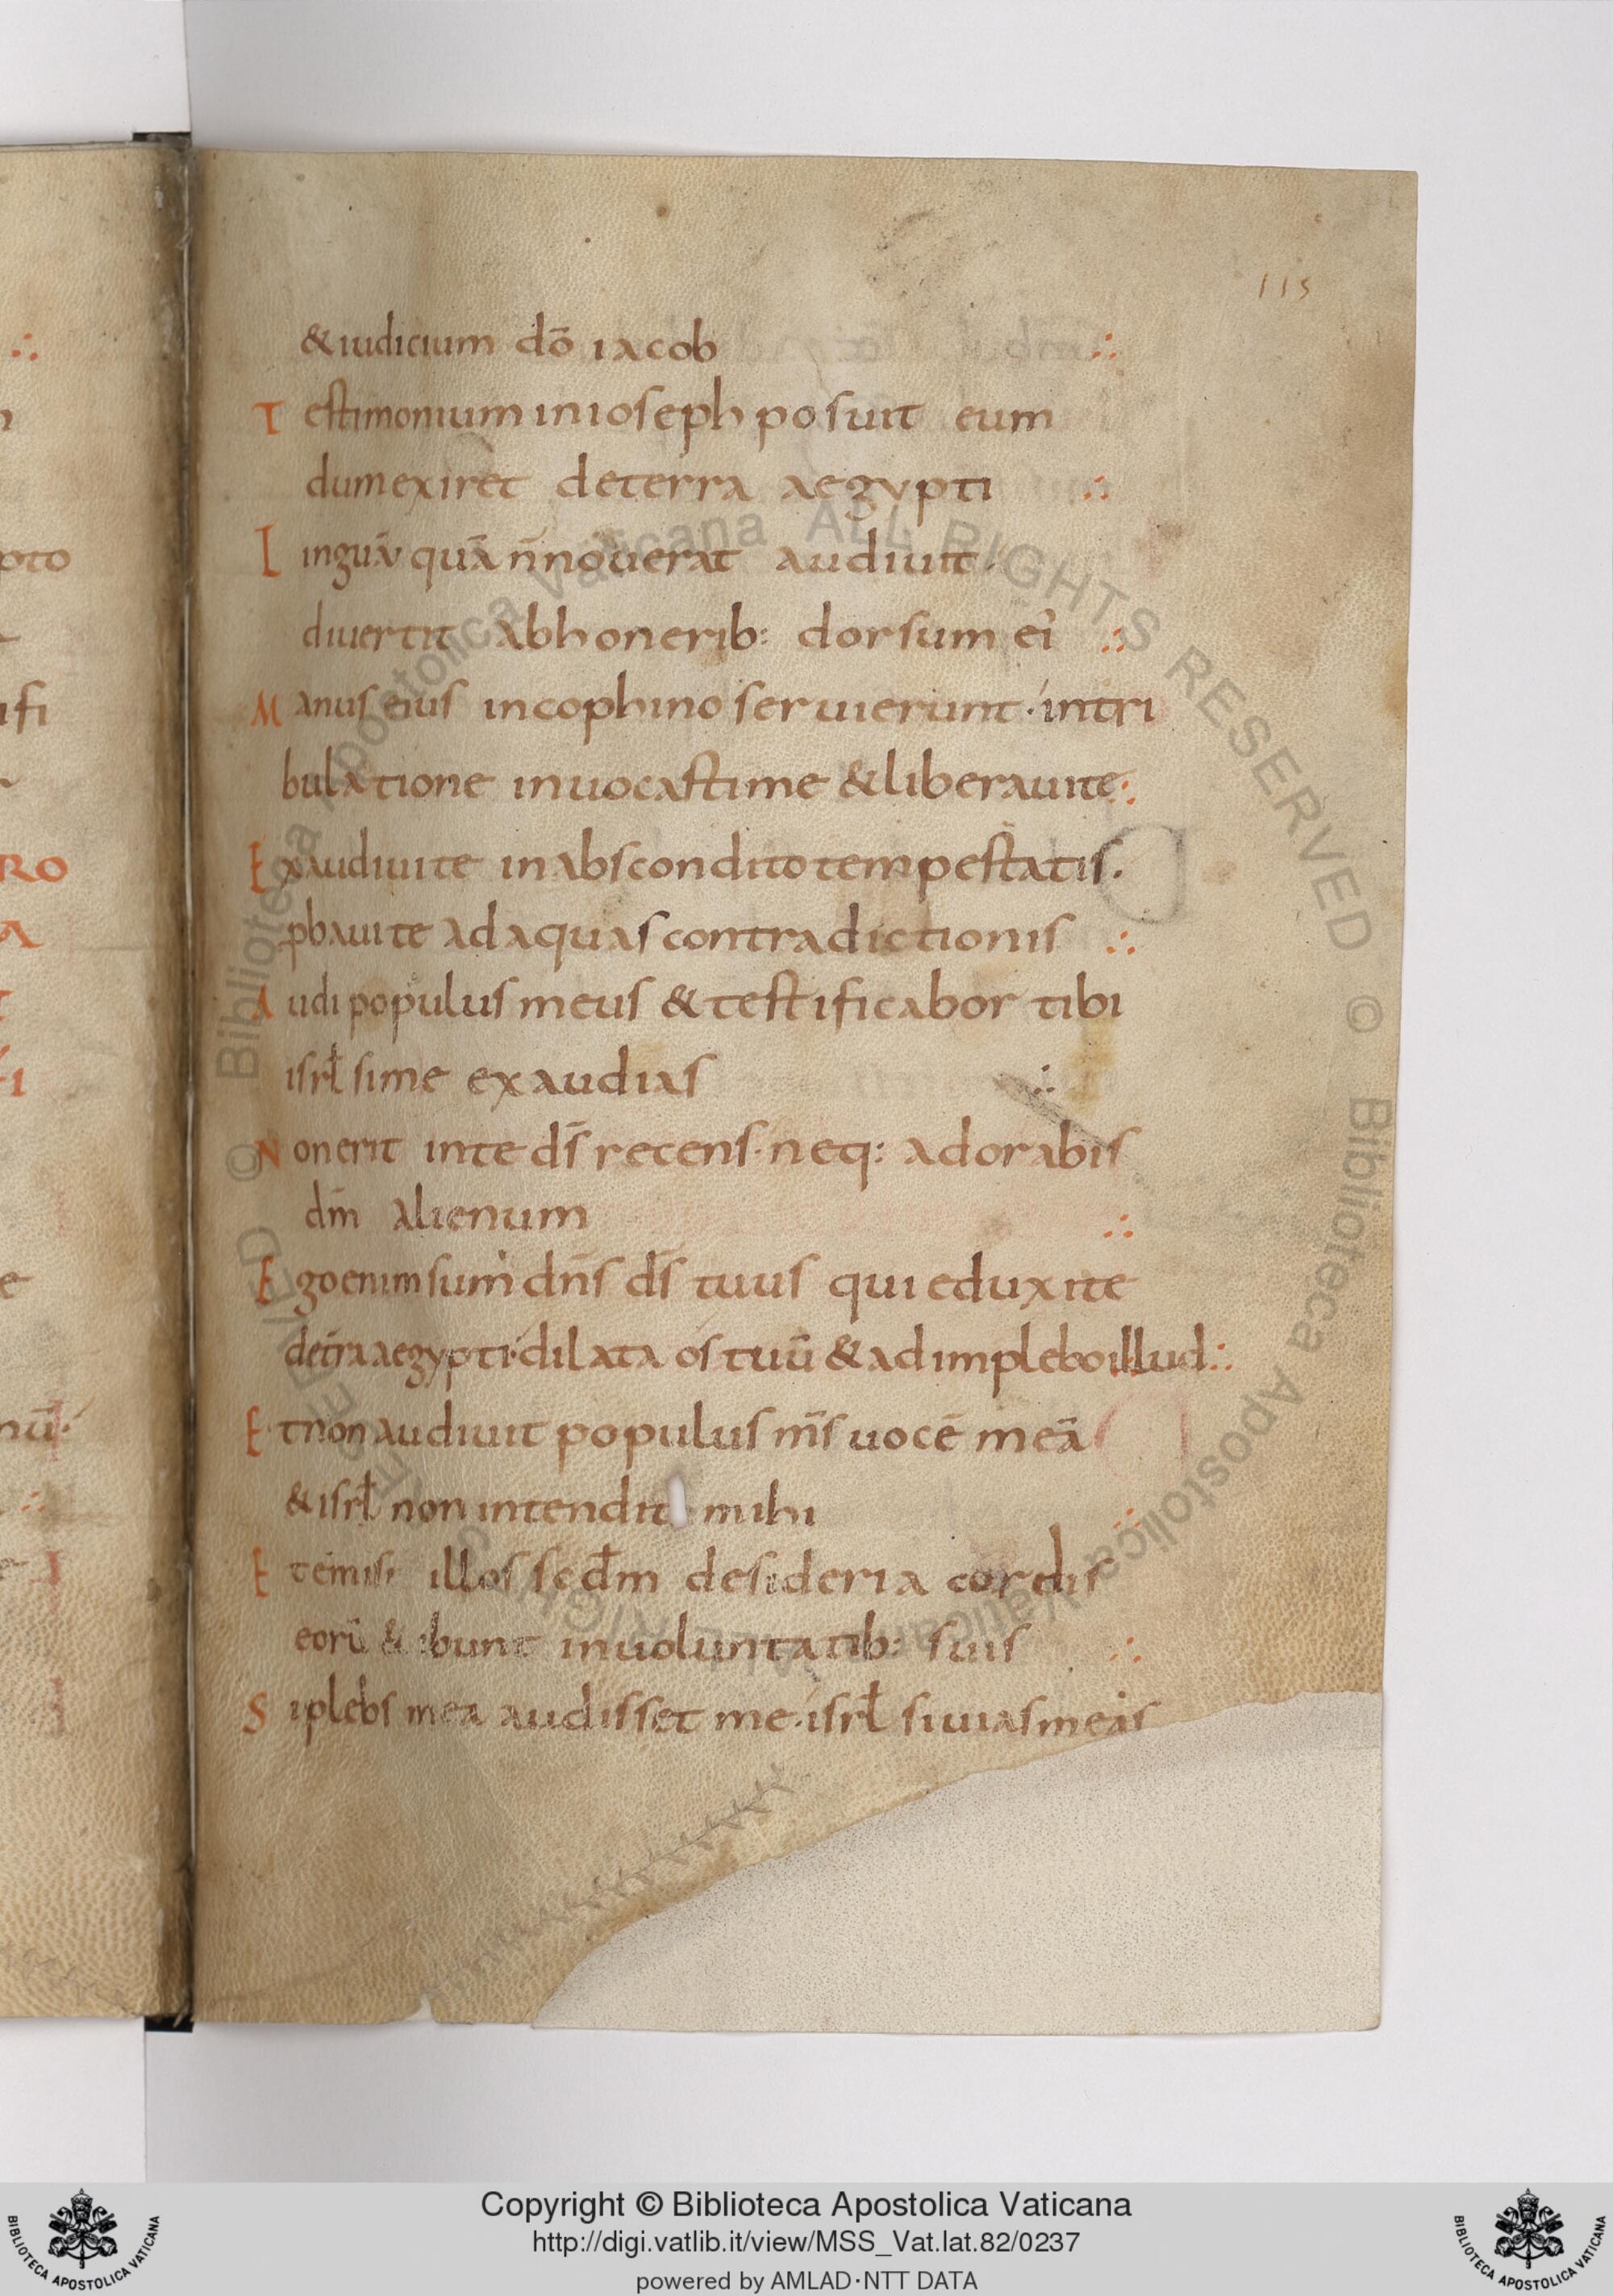 115
&iudicium dō iacob ∴
Testimonium inioseph posuit eum
dumexiret deterra aegypti ∴
Linguā quā n̄noverat audiuit·
diuertit abhonerib: dorsum ei' ∴
Manus eius incophino seruierunt· intri
bulatione inuocastime &liberauite ∴
Exaudiuite inabscondito tempestatis.
ꝓbauite adaquas contradictionis ∴
Audi populus meus & testificabor tibi
isrł sime exaudias ∴
Nonerit inte dS̄ recens· neq: adorabis
dm̄ alienum ∴
Egoenim sum dn̄s ds̄ tuus qui eduxite
det̄ra aegypti· dilata os tuū & adimplebo illud ∴
Et non audiuit populus m̄s uocē meā
& isrł non intendit mihi ∴
Etemisi illos scđm desideria cordis
eorū & ibunt inuoluntatib: suis ∴
Siplebs mea audisset me· isrł siuias meas
Copyright © Biblioteca Apostolica Vaticana
http://digi.vatlib.it/view/MSS_Vat.lat.82/0237
powered by AMLAD·NTT DATA